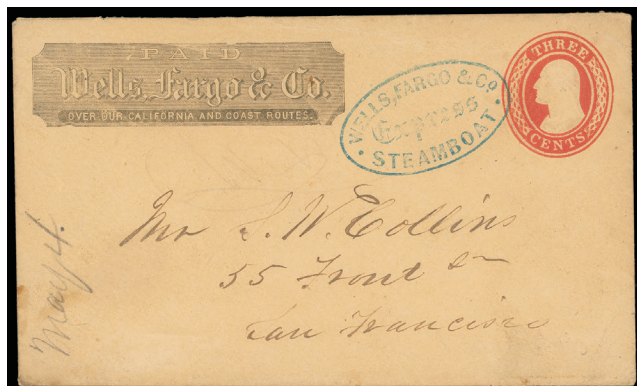 PAID
Wells, Fargo & Co.
OVER OUR CALIFORNIA AND COAST ROUTES.
WELLS, FARGO & CO
Express
STEAMBOAT
THREE
CENTS
Mr S. W. Collins
55 Front St
San Francisco
May 4.